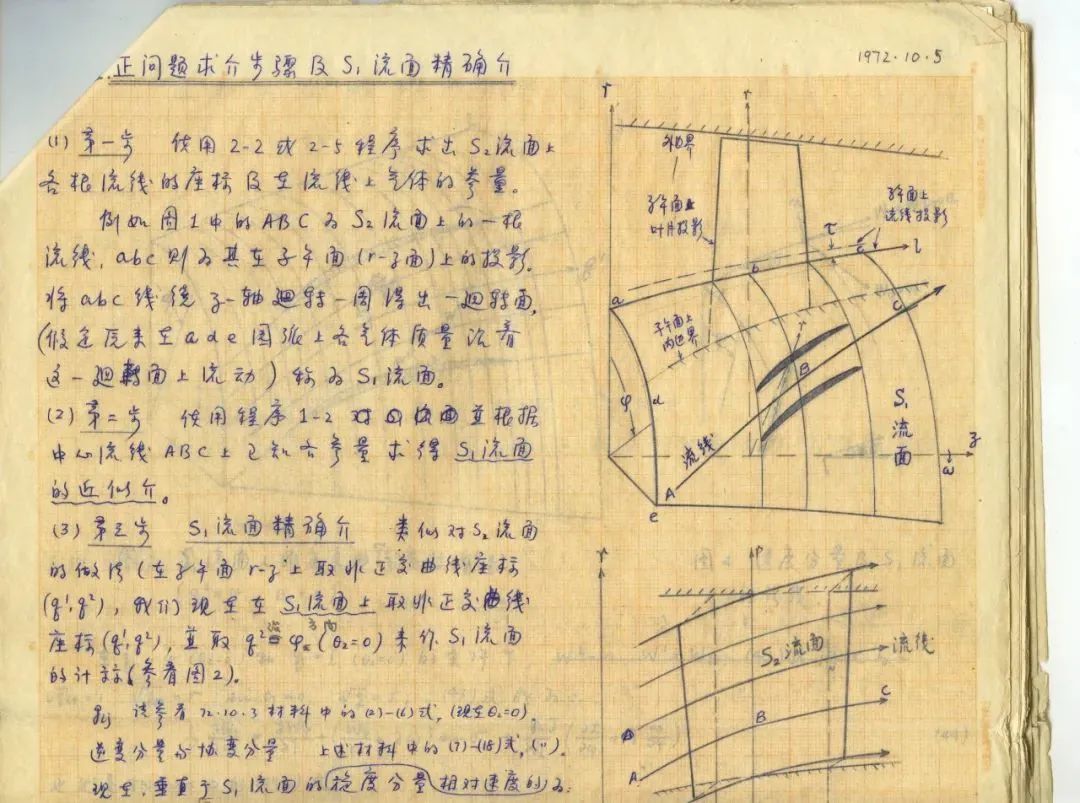 正问题求介步骤及S₁流面精确介
1972.10.5
(1) 第一步 使用2-2或2-5程序求出S₂流面上
各根流线的座标及在流线上气体的参量。
例如图1中的ABC为S₂流面上的一根
流线,abc则为其在子午面(r-z面)上的投影。
将abc线绕z-轴廻转一周得出一廻转面,
(假定原来在ade圆弧上各气体质量沿着
这一廻转面上流动)称为S₁流面。
(2) 第二步 使用程序1-2 并根据
中心流线ABC上已知各参量求得S₁流面
的近似介。
(3) 第三步 S₁流面精确介 类似对S₂流面
的做法(在子午面r-z上取非正交曲线座标
(q¹,q²),我们现在在S₁流面上取非正交曲线
座标(q¹,q²),并取q² φ (θ₂=0)来作S₁流面
的计算(参看图2)。
gij 请参看72.10.3材料中的(2)-(6)式,(现在θ₂=0).
逆变分量与协变分量 上述材料中的(7)-(18)式,(").
现在,垂直于S₁流面的 速度分量(相对速度的)为:
r
r
外边界
子午面上
叶片投影
子午面上
流线投影
τ
c
l
a
b
子午面上
内边界
C
B
φ
d
S₁
流
面
流线
z
ω
A
e
r
φ
S₂流面
流线
C
B
A